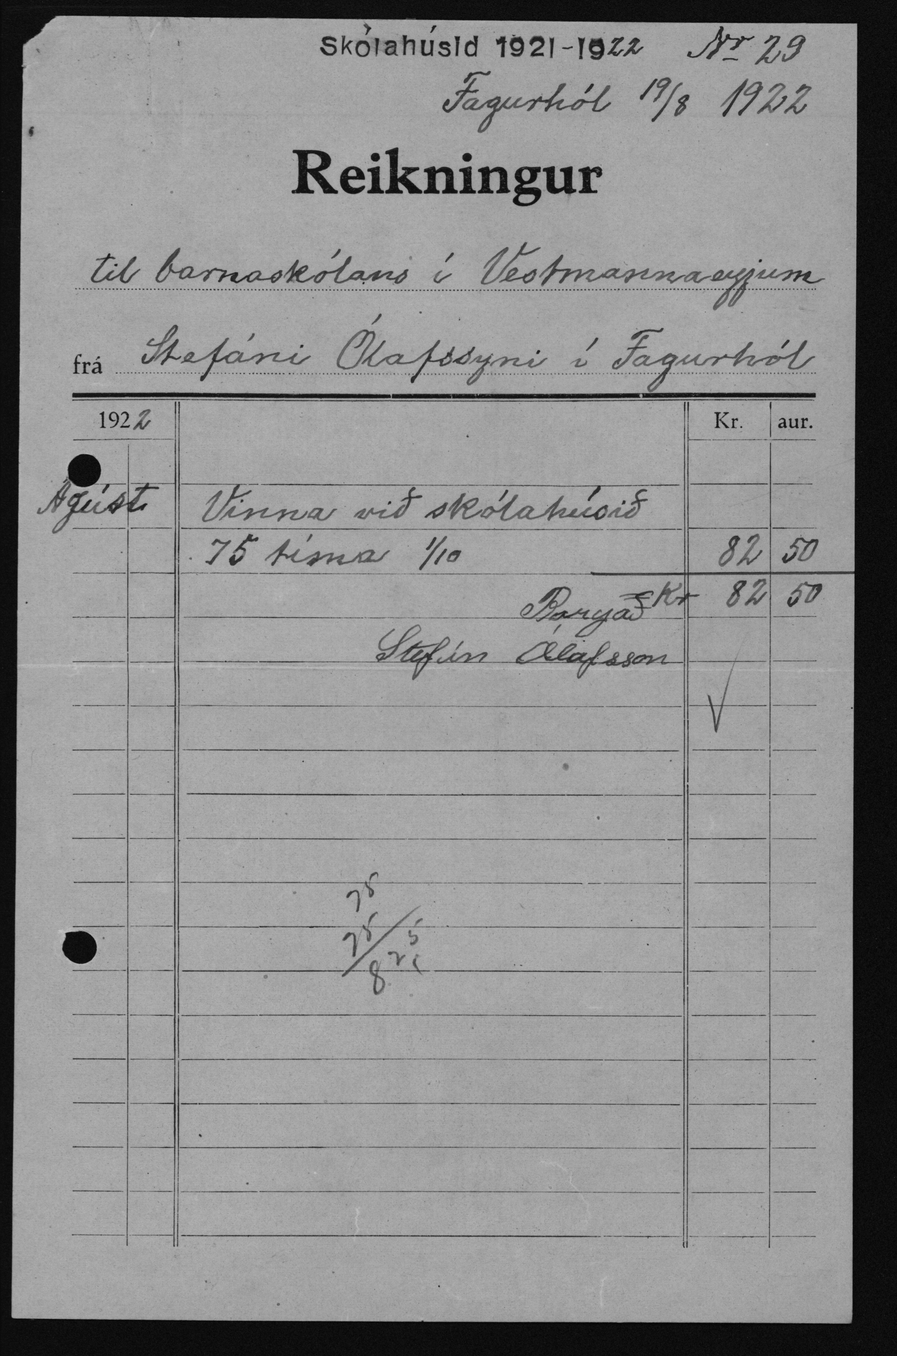 Skólahúsid 1921-1922 Nr 29
Fagurhól 19/8 1922
Reikningur
til barnaskólans í Vestmannaeyjum
frá Stefáni Ólafssyni í Fagurhól
1922 Kr. aur.
Ágúst Vinna við skólahúsið
75 tíma 1/10 82 50
Kr 82 50
Borgað
Stefán Ólafsson
75
75
825